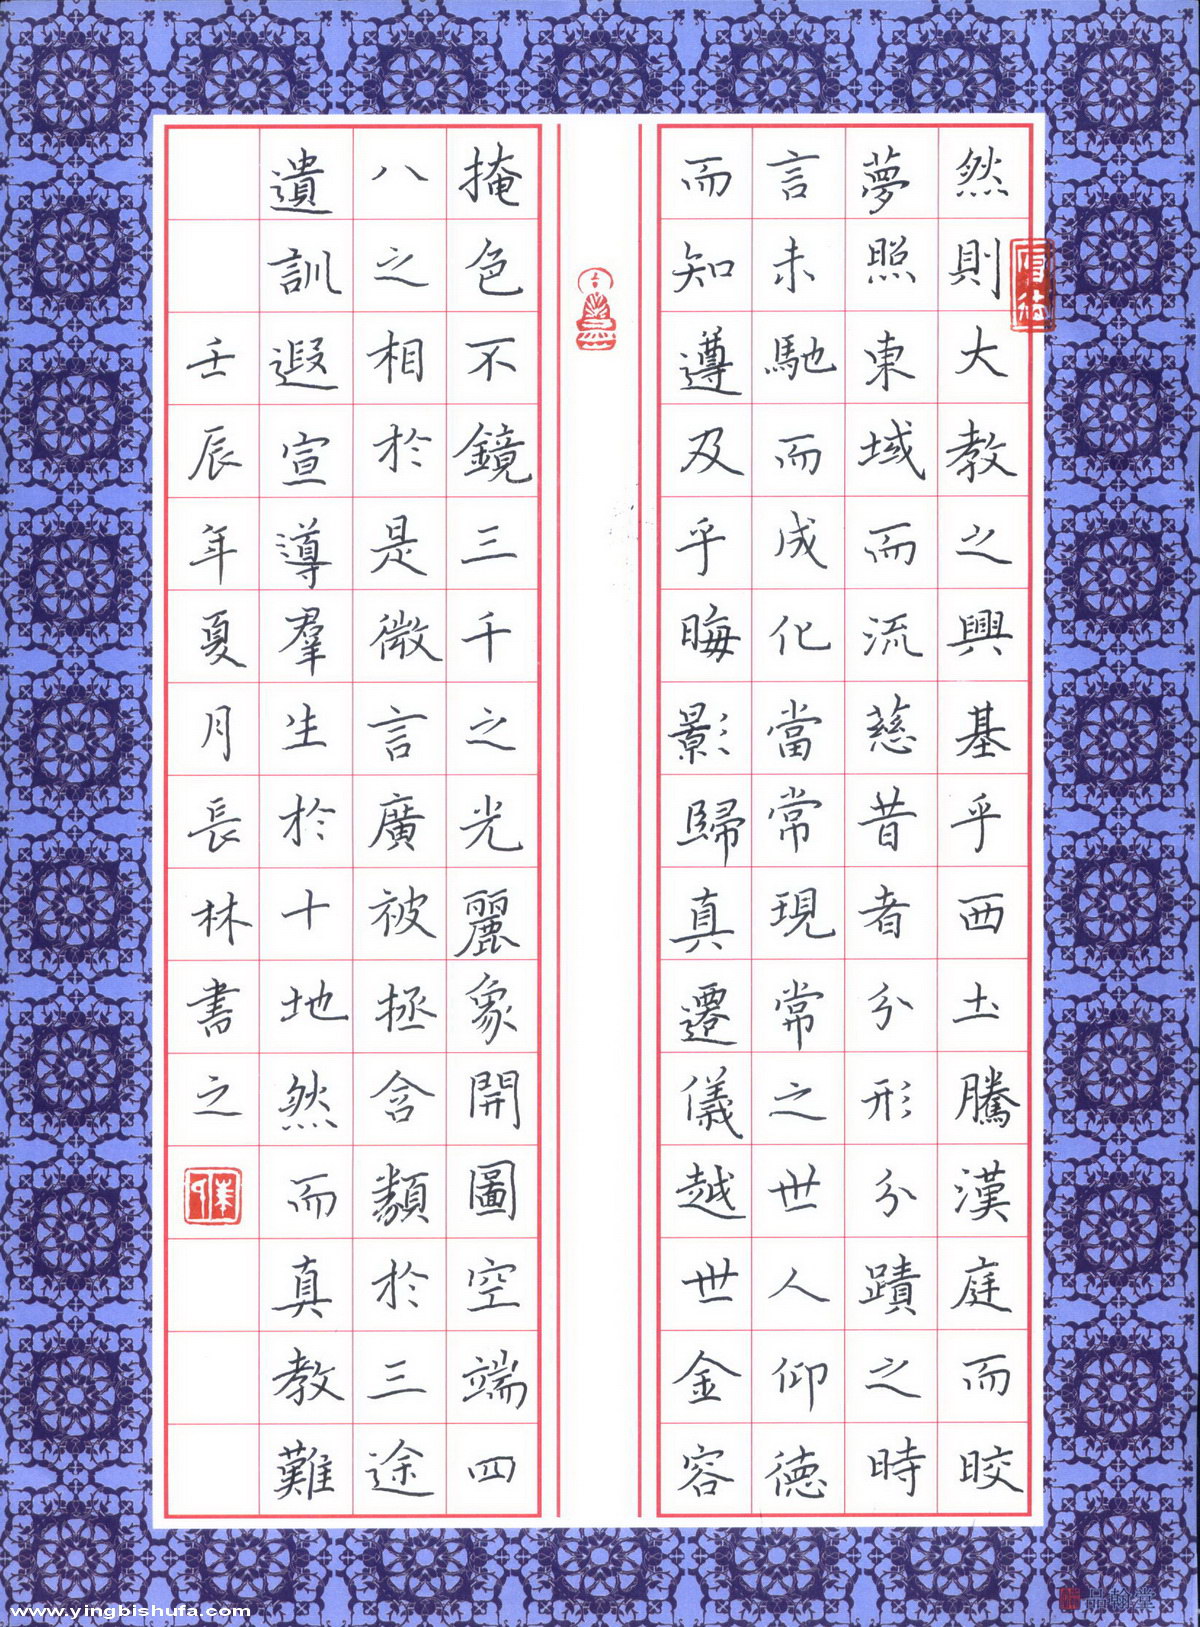 然則大教之興基乎西土騰漢庭而皎
夢照東域而流慈昔者分形分蹟之時
言未馳而成化當常現常之世人仰德
而知遵及乎晦影歸真遷儀越世金容
掩色不鏡三千之光麗象開圖空端四
八之相於是微言廣被拯含類於三途
遺訓遐宣導羣生於十地然而真教難
壬辰年夏月長林書之
www.yingbishufa.com
品翰堂